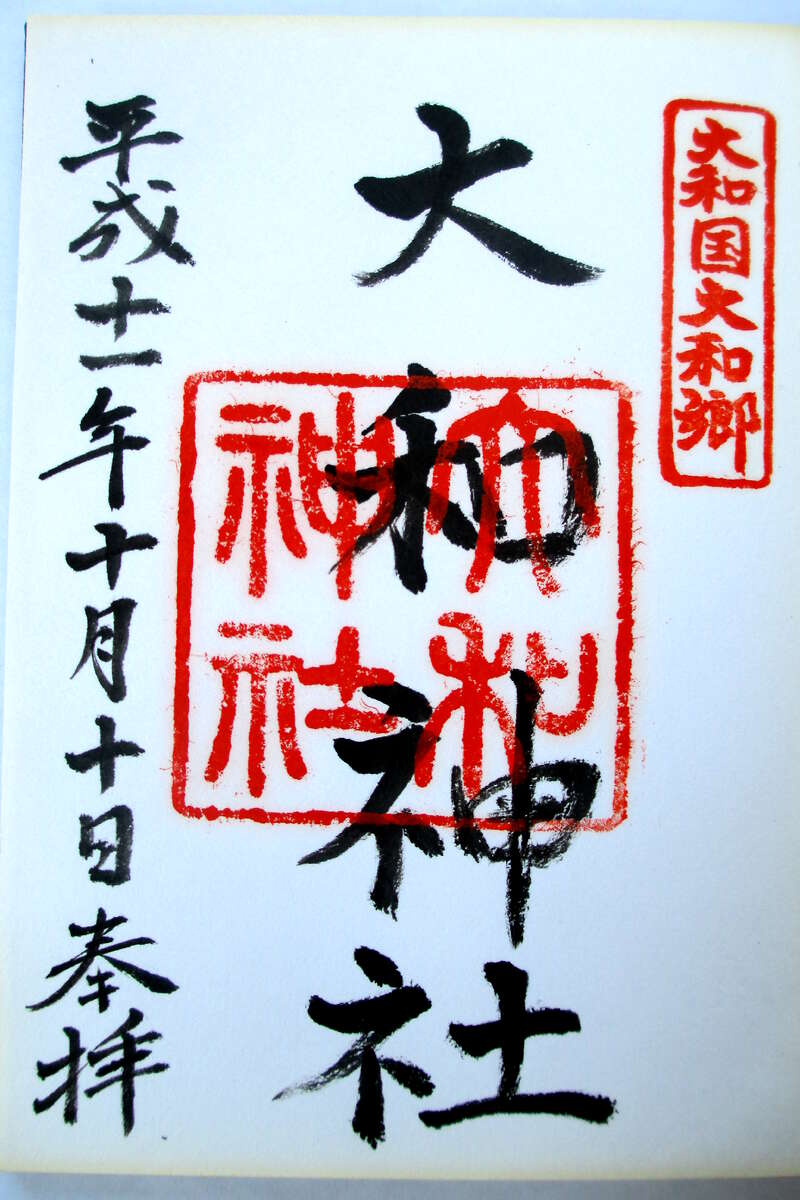 大和国大和郷
大和神社
大和神社
平成十一年十月十日奉拝